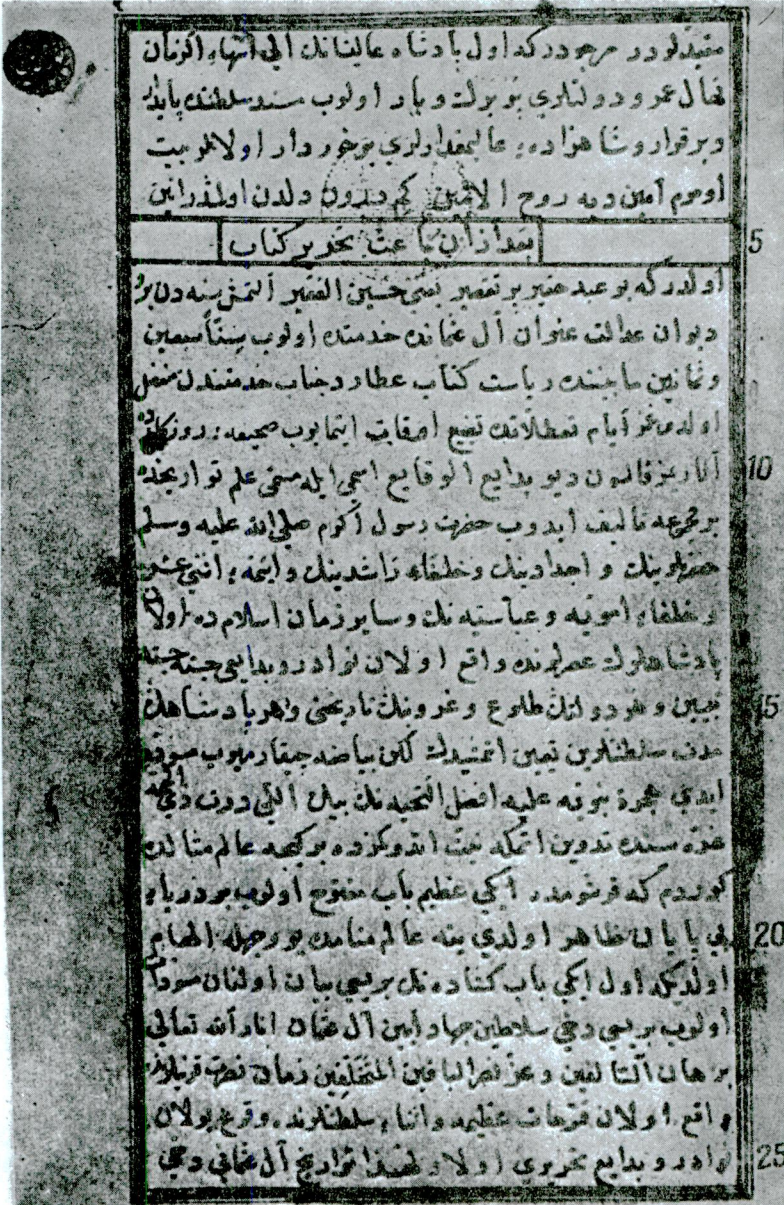 مرجودر كه اول پادشاه عاليشانك الى انتهاء الزمان
نهال عمر و دولتلرى اولوب مسند سلطنتده پايدار
و برقرار و شاهزاده ء عاليمقدارلرى برخوردار اولالر بيت
اوموم آمين ديه روح الامين كم درون دلدن اولندر انين
بعد ازان باعث تحرير كتاب
5
اولدر كه بو عبد حقير پر تقصير يعنى حسين الفقير التمش سنه دن برو
ديوان عدالت عنوان آل عثمانده خدمتده اولوب سبعين
و ثمانين مابيننده رياست كتاب عطارد جناب خدمتندن منفصل
اولدوغمز ايام تعطلاتده تضيع اوقات ايتمايوب صحيفه ء روزكارده
آثارمز قالسون ديو بدايع الوقايع اسمى ايله مسمى علم تواريخده
10
بر مجموعه تاليف ايدوب حضرت رسول اكرم صلى الله عليه وسلم
حضرتلرينك و اجدادينك و خلفاء راشدينك و ائمه ء اثنى عشر
و خلفاء امويه و عباسيه نك و ساير زمان اسلامده اولان
پادشاهلرك عصرلرنده واقع اولان نوادر و بدايعى جسته جسته
تبيين و هر دولتك طلوع و غروبنك تاريخنى و هر پادشاهك
15
مدت سلطنتلرين تعيين اتمشيدك لكن بياضه چيقارميوب مسوده
ايدى هجرة نبويه عليه افضل التحيه نك بيك اللى درت ذى الحجه
غره سنده تدوين اتمكه نيت اندوكمزده بر كيجه عالم مثالده
كوردم كه قرشومده ايكى عظيم باب مفتوح اولوب بر درياء
بى پايان ظاهر اولدى ينه عالم منامده بو وجهله الهام
20
اولدى كه اول ايكى باب كشاده نك بريسى بيان اولنان مسودات
اولوب بريسى دخى سلاطين جهاد آيين آل عثمان انار الله تعالى
برهان السالفين و عز نصر الباقين المتخلفين زمان نصرت قرينلرنده
واقع اولان فتوحات عظيمه و اثناء سلطنتلرنده وقوع بولان
نوادر و بدايع تحريرى اولا و لهذا تواريخ آل عثمانى دخى
25